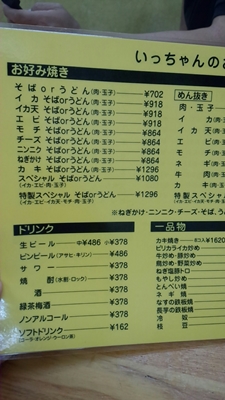 いっちゃんのお
お好み焼き
そばorうどん(肉・玉子) ¥702
イカ そばorうどん(肉・玉子) ¥918
イカ天 そばorうどん(肉・玉子) ¥918
エビ そばorうどん(肉・玉子) ¥918
モチ そばorうどん(肉・玉子) ¥864
チーズ そばorうどん(肉・玉子) ¥864
ニンニク そばorうどん(肉・玉子) ¥864
ねぎかけ そばorうどん(肉・玉子) ¥864
カキ そばorうどん(肉・玉子) ¥1296
スペシャル そばorうどん ¥1080
(イカ・エビ・肉・玉子)
特製スペシャル そばorうどん ¥1296
(イカ・エビ・イカ天・モチ・肉・玉子)
めん抜き
肉・玉子
イカ
イカ天
エビ
モチ
ネギ
牛
カキ
特製スペシャル
(イカ・エビ・イカ天
※ねぎかけ・ニンニク・チーズ・そば、う
ドリンク
生ビール 中¥486 小¥378
ビンビール(アサヒ・キリン) ¥486
サワー ¥378
焼酎(水割・ロック) ¥378
酒 ¥378
緑茶梅酒 ¥378
ノンアルコール ¥378
ソフトドリンク ¥162
(コーラ・オレンジ・ウーロン茶)
一品物
カキ焼き ¥1620
ピリカライカ炒め
牛炒め・豚炒め
鶏炒め・野菜炒め
ねぎ塩豚トロ
もやし炒め
とんぺい焼
ネギ焼
なすの鉄板焼
長芋の鉄板焼
冷奴
枝豆